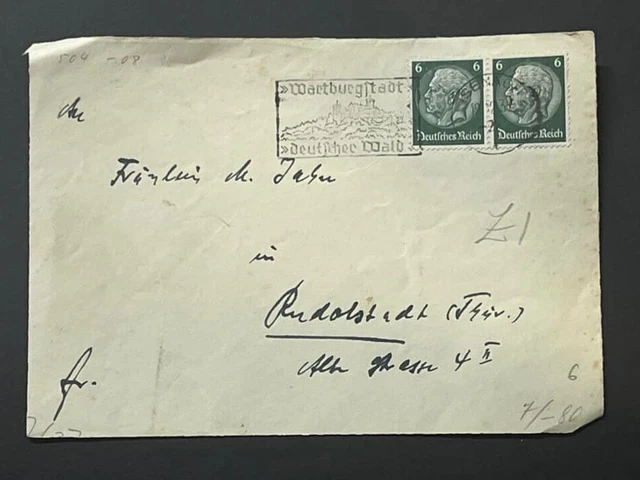 504 - 08
6 6 6 6
Deutsches Reich Deutsches Reich
»Wartburgstadt«
»deutscher Wald«
An
Fräulein M. Jahn
Z1
in
Rudolstadt (Thür.)
Alte Strasse 4 II
fr.
6
7/-80